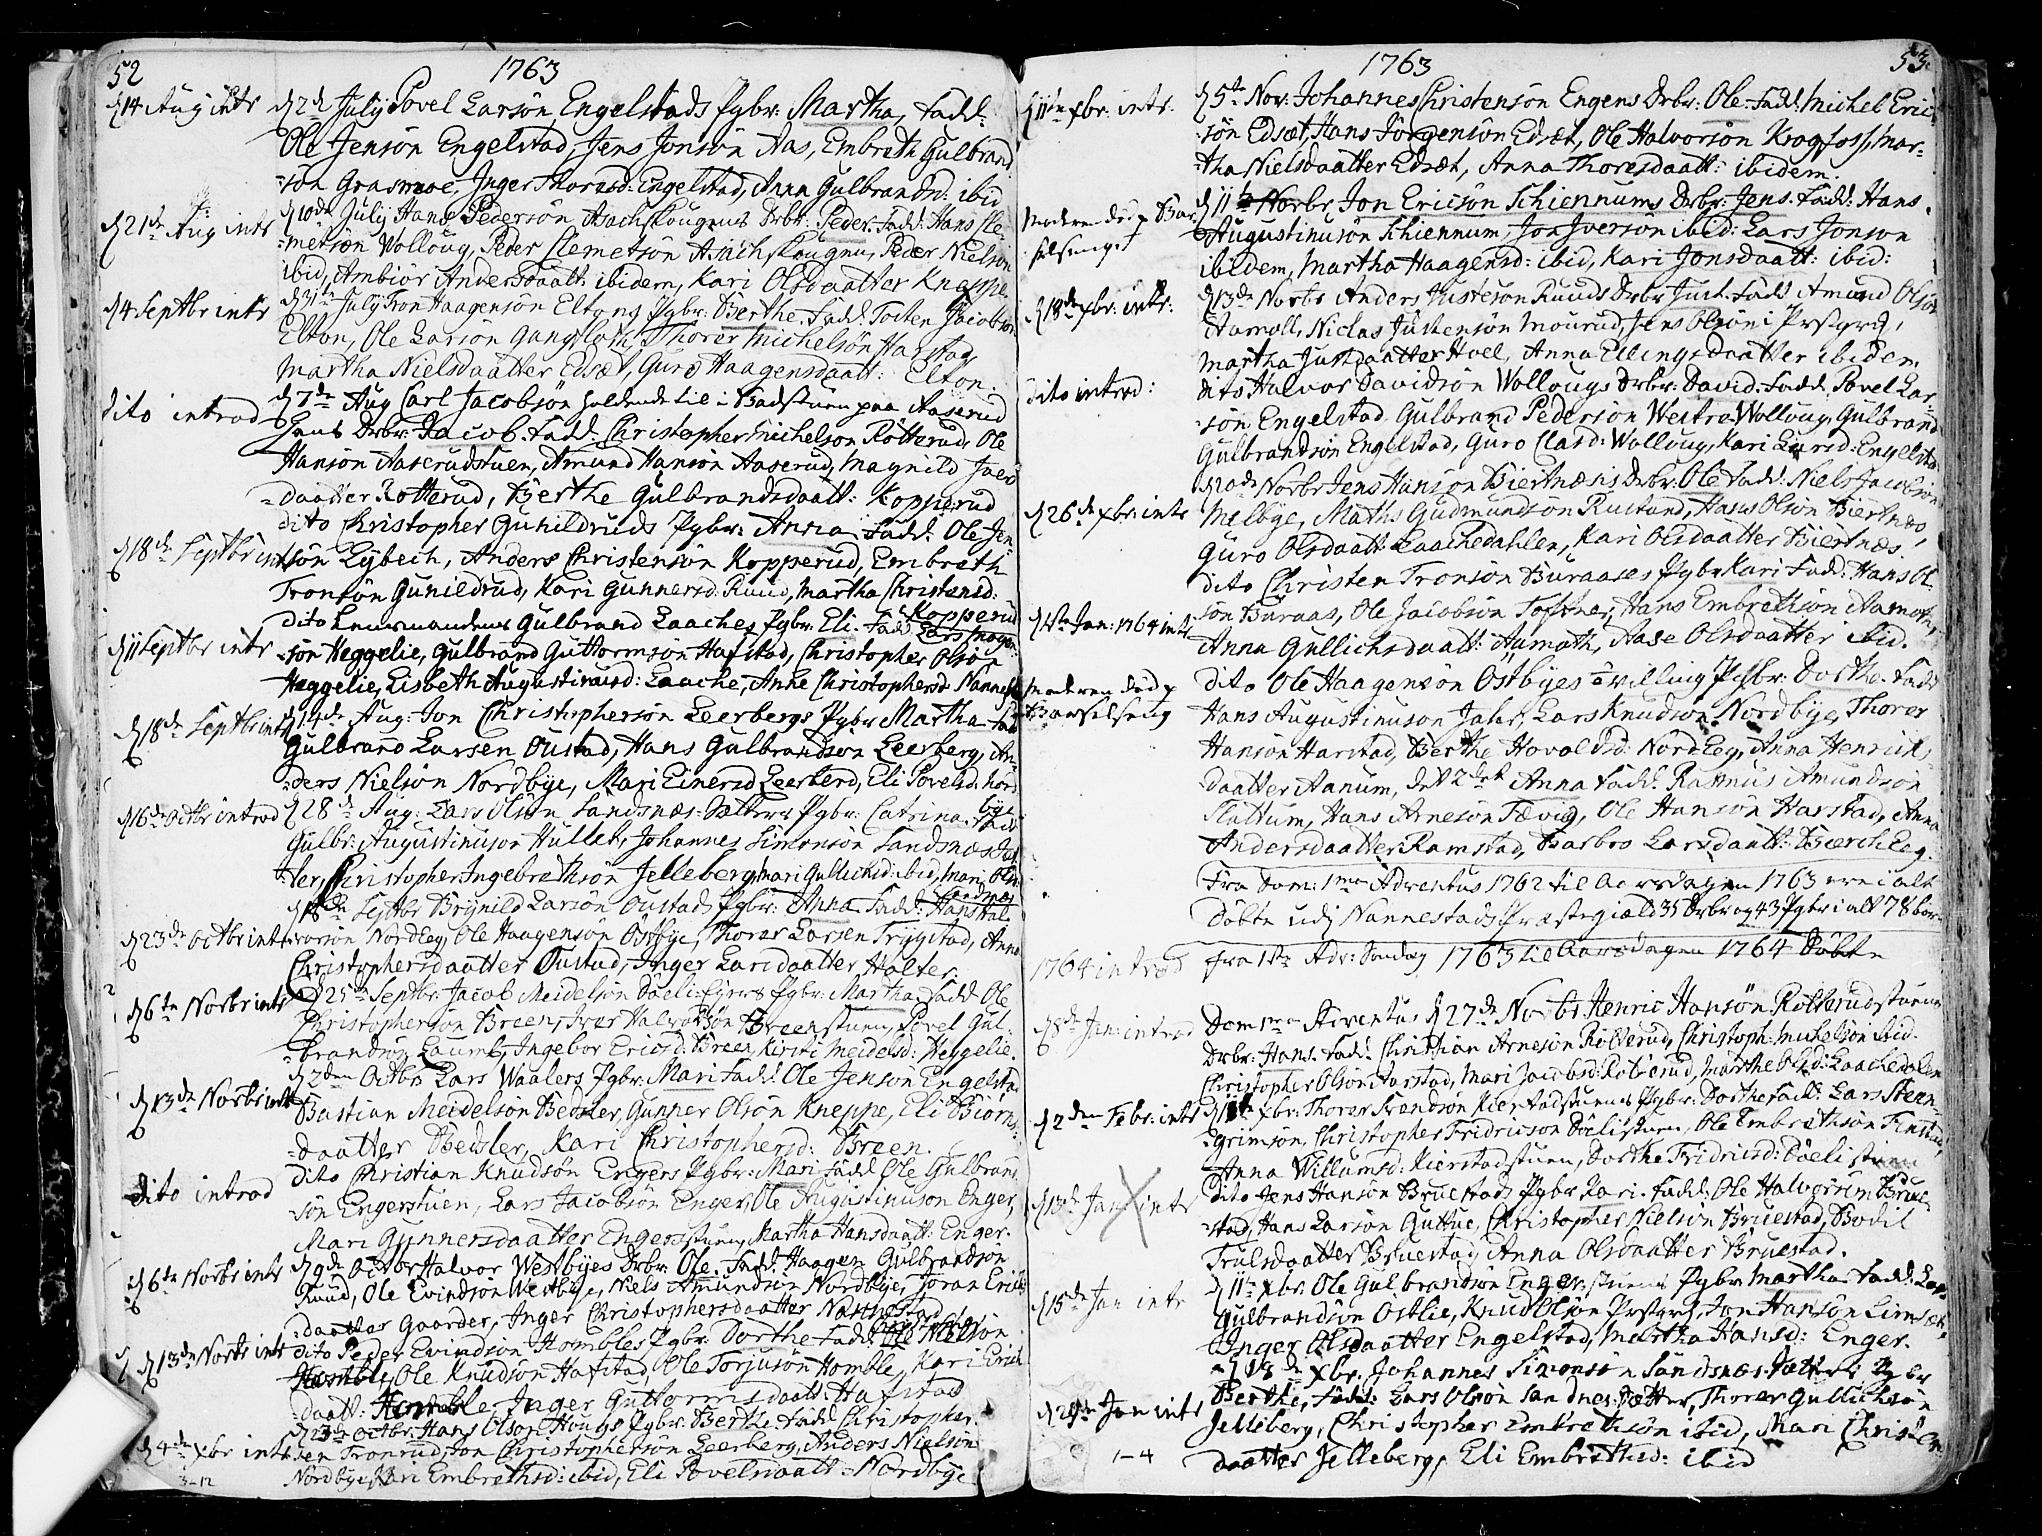 52
1763
d 14 Aug intr
d 2d July Povel Larsön Engelstads Pgbr: Martha, Fadd:
Ole Jensön Engelstad, Jens Jonsön Aas, Embreth Gulbrand
sön Grasmoe, Inger Thoresd: Engelstad, Anna Gulbrandsd: ibid
d 21de Aug intr
d 10de July Hans Pedersön Aachskougens Drbr: Peder. Fadd: Hans Cle
metsön Wolloug, Peder Clemetsön Aachskougen, Peder Nielsön
ibid, Ambiör Andersdaatt: ibidem, Kari Olsdaatter Knappe
d 4 Septbr intr
d 31te July Iron Haagensön Eltons Pgbr: Berthe, Fadd: Tosten Jacobsön
Elton, Ole Larsön Gangsloth, Thorer Michelsön Harstad,
Martha Nielsdaatter Edsæt, Guro Haagensdaatt: Elton.
dito introd
d 7de Aug Carl Jacobsön holdende til i Badstuen paa Aaserud
hans Drbr: Jacob. Fadd: Christopher Michelsön Rotterud, Ole
Hansön Aaserudstuen, Amund Hansön Aaserud, Magnild Joens
daatter Rotterud, Berthe Gulbrandsdaatt: Kopperud
d 18de Septbr intr
dito Christopher Gunildruds Pgbr: Anna. Fadd: Ole Jen
sön Lybech, Anders Christensön Kopperud, Embreth
Tronsön Gunildrud, Kari Gunnersd: Ruud, Martha Christensd:
Kopperud
d 11 Septbr intr
dito Lensmandens Gulbrand Laaches Pgbr: Eli. Fadd: Lars Mogen
sön Heggelie, Gulbrand Guttormsön Hafstad, Christopher Olsön
Heggelie, Lisbeth Augustinusd: Laache, Anne Christophersd: Nannest
d 18de Septbr intr
d 14de Aug: Jon Christophersön Leerbergs Pgbr Martha. Fadd
Gulbrand Larsen Oustad, Hans Gulbrandsön Leerberg, An
ders Nielsön Nordbye, Mari Einersd Leerberg, Eli Povelsd: Nord
bye
d 16de Octbr introd
d 28de Aug: Lars Olsön Sandsnæs-Sætters Pgbr: Catrina. Fadd
Gulbr: Augustinuson Hullet, Johannes Simonsön Sandsnæs Sæt
ter, Christopher Ingebrethsön Jelleberg, Mari Gullichsd: ibid, Mari Olsd:
Sandsnæs
d 23de Octbr intr
d 18de Septbr Brynild Larsön Oustads Pgbr: Anna. Fadd: Hans Hal
vorsön Nordleg, Ole Haagensön Östbye, Thorer Larsen Trygstad, Anna
Christophersdaatter Oustad, Inger Larsdaatter Halter.
d 6te Novbr intr
d 25de Septbr Jacob Meidelsön Döeli-Eyers Pgbr: Martha. Fadd Ole
Christophersön Breen, Iver Halvorsön Breenstuen, Povel Gul-
brandsön Laumb, Ingebor Ericsd: Breen, Kirsti Meidelsd: Heggelie.
d 13de Novbr intr
d 2den Octbr Lars Waalers Pgbr: Mari Fadd: Ole Jensön Engelstad
Bastian Meidelsön Bedsler, Gunner Olsön Kneppe, Eli Biörns-
daatter Bedsler, Kari Christophersd: Breen.
dito introd
dito Christian Knudsön Engers Pgbr: Mari Fadd Ole Gulbrand
sön Engerstuen, Lars Jacobsön Enger, Ole Augustinuson Enger,
Mari Gunnersdaatter Engersstuen, Martha Hansdaatt: Enger.
d 6te Novbr intr
d 9de Octbr Halvor Westbyes Drbr: Ole. Fadd: Haagen Gulbrandsön
Ruud, Ole Evindsön Westbye, Niels Amundsön Nordbye, Joran Erichs
daatter Gaarder, Inger Christophersdaatter Nannestad.
d 13de Novbr intr
dito Peder Evindsön Hombles Pgbr: Dorthe Fadd: Ole Nielsön
Homble, Ole Knudsön Hafstad, Ole Torjusön Homble, Kari Erich
daatt: Homble, Inger Guttormsdaatt: Hafstad
d 4de xbr intr
d 23de Octbr: Hans Olsön Hougs Pgbr: Berthe Fadd Christopher
sen Tronrud, Jon Christophersön Leerberg, Anders Nielsön
Nordbye, Kari Embrethsd: ibid, Eli Povelsdaatt: Nordbye
3-12
1763
53.
d 11te xbr: intr.
d 5te Nov: Johannes Christensön Engens Drbr: Ole. Fadd: Michel Eric
sön Edsæt, Hans Jörgensön Edsæt, Ole Halvorsön Krogfoss, Mar-
tha Nielsdaatter Edsæt, Anna Thoresdaatt: ibidem.
Moderen död i Bar
selseng. †
d 11te Novbr, Jon Ericsön Schiennums Drbr: Jens. Fadd: Hans
Augustinusön Schiennum, Jon Iversön ibid: Lars Jonsön
ibidem, Martha Haagensd: ibid, Kari Jonsdaatt: ibid:
d 18de xbr: intr:
d 13de Novbr Anders Justesön Ruuds Drbr Just. Fadd Amund Olsön
Aamoll, Niclas Justensön Mourud, Jens Olsön i Prstgrd,
Martha Justdaatter Hoel, Anna Ellingsdaatter ibidem.
dito introd:
dito Halvor Davidsön Wollougs Drbr: David: Fadd: Povel Lar-
sön Engelstad, Gulbrand Pedersön Westre Wolloug, Gulbrand
Gulbrandsön Engelstad, Guro Clasd: Wolloug, Kari Larsd: Engelsta
d 26de xbr: intr
d 20de Novbr Jens Hansön Biertnæsis Drbr: Ole Fadd: Niels Jacobsön
Melbye, Maths Gudmundsön Rustand, Hans Olsön Biertnæs,
Guro Olsdaatt Laachedahlen, Kari Olsdaatter Biertnæs.
d 1te Jan: 1764 intr
dito Christen Tronsön Buraases Pgbr Kari Fadd: Hans Ol
sön Buraas, Ole Jacobsön Toftner, Hans Embrethsön Aamoth,
Anna Gullichsdaatt: Aamoth, Aase Olsdaatter ibid.
Moderen död i
Barselseng
dito Ole Haagensön Östbyes tvilling Pgbr: Dorthe. Fadd
Hans Augustinuson Jahr, Lars Knudsön Nordbye, Thorer
Hansön Harstad, Berthe Hovaldsd: Nordleg, Anna Henrichs-
daatter Aanum, det 2det Anna Fadd: Rasmus Amundsön
Slattum, Hans Arnesön Tævig, Ole Hansön Harstad, Anna
Andersdaatter Ramstad, Barbro Larsdaatt: Bierchleg.
Fra Dom: 1ma Adventus 1762 til Aarsdagen 1763 ere i alt
Döbte udj Nannestads Præstegield 35 Drbr og 43 Pgbr i alt 78 bör
1764 introd
fra 1ste Adv: Söndag 1763 til Aarsdagen 1764 Döbte
d 8de Jan: introd
Dom 1ma Adventus d 27de Novbr Henric Hansön Rotterudstuens
Drbr: Hans. Fadd: Christian Arnesön Rotterud, Christoph: Michelsön ibid.
Christopher Olsön Aarstad, Mari Jacobsd: Rotterud, Marthe Olsd: Laachedalen
d 2den Febr: intr
d 11te xbr: Thorer Svendsön Kierstadstuens Pgbr: Dorthe Fadd: Lars Steen-
grimsön, Christopher Fridricson Döelistuen, Ole Embrethsön Finstad,
Anna Willumsd: Kierstadstuen, Dorthe Fridricsd: Döelistuen
d 13de Jan intr
dito Jens Hansön Bruestads Pgbr Kari. Fadd: Ole Halvorsön Brue-
stad, Hans Larsön Guttue, Christopher Nielsön Bruestad, Bodil
Trulsdaatter Bruestad Anna Olsdaatter Bruestad.
d 15de Jan intr
d 11te xbr: Ole Gulbrandsön Enger stuens Pgbr Martha Fadd: Lars
Gulbrandsön Ostlie, Knud Olsön Prstgrd, Jon Hansön Liemsæt
Inger Olsdaatter Engelstad, Martha Hansd: Enger.
d 29de Jan intr
d 18de xbr. Johannes Simonsön Sandsnæs-Sætters Pgbr
Berthe, Fadd: Lars Olsön Sandnes-Sætter, Thorer Gullichsön
Jelleberg, Christopher Embrethsön ibid, Mari Christen
daatter Jelleberg, Eli Embrethsd: ibid
1-4